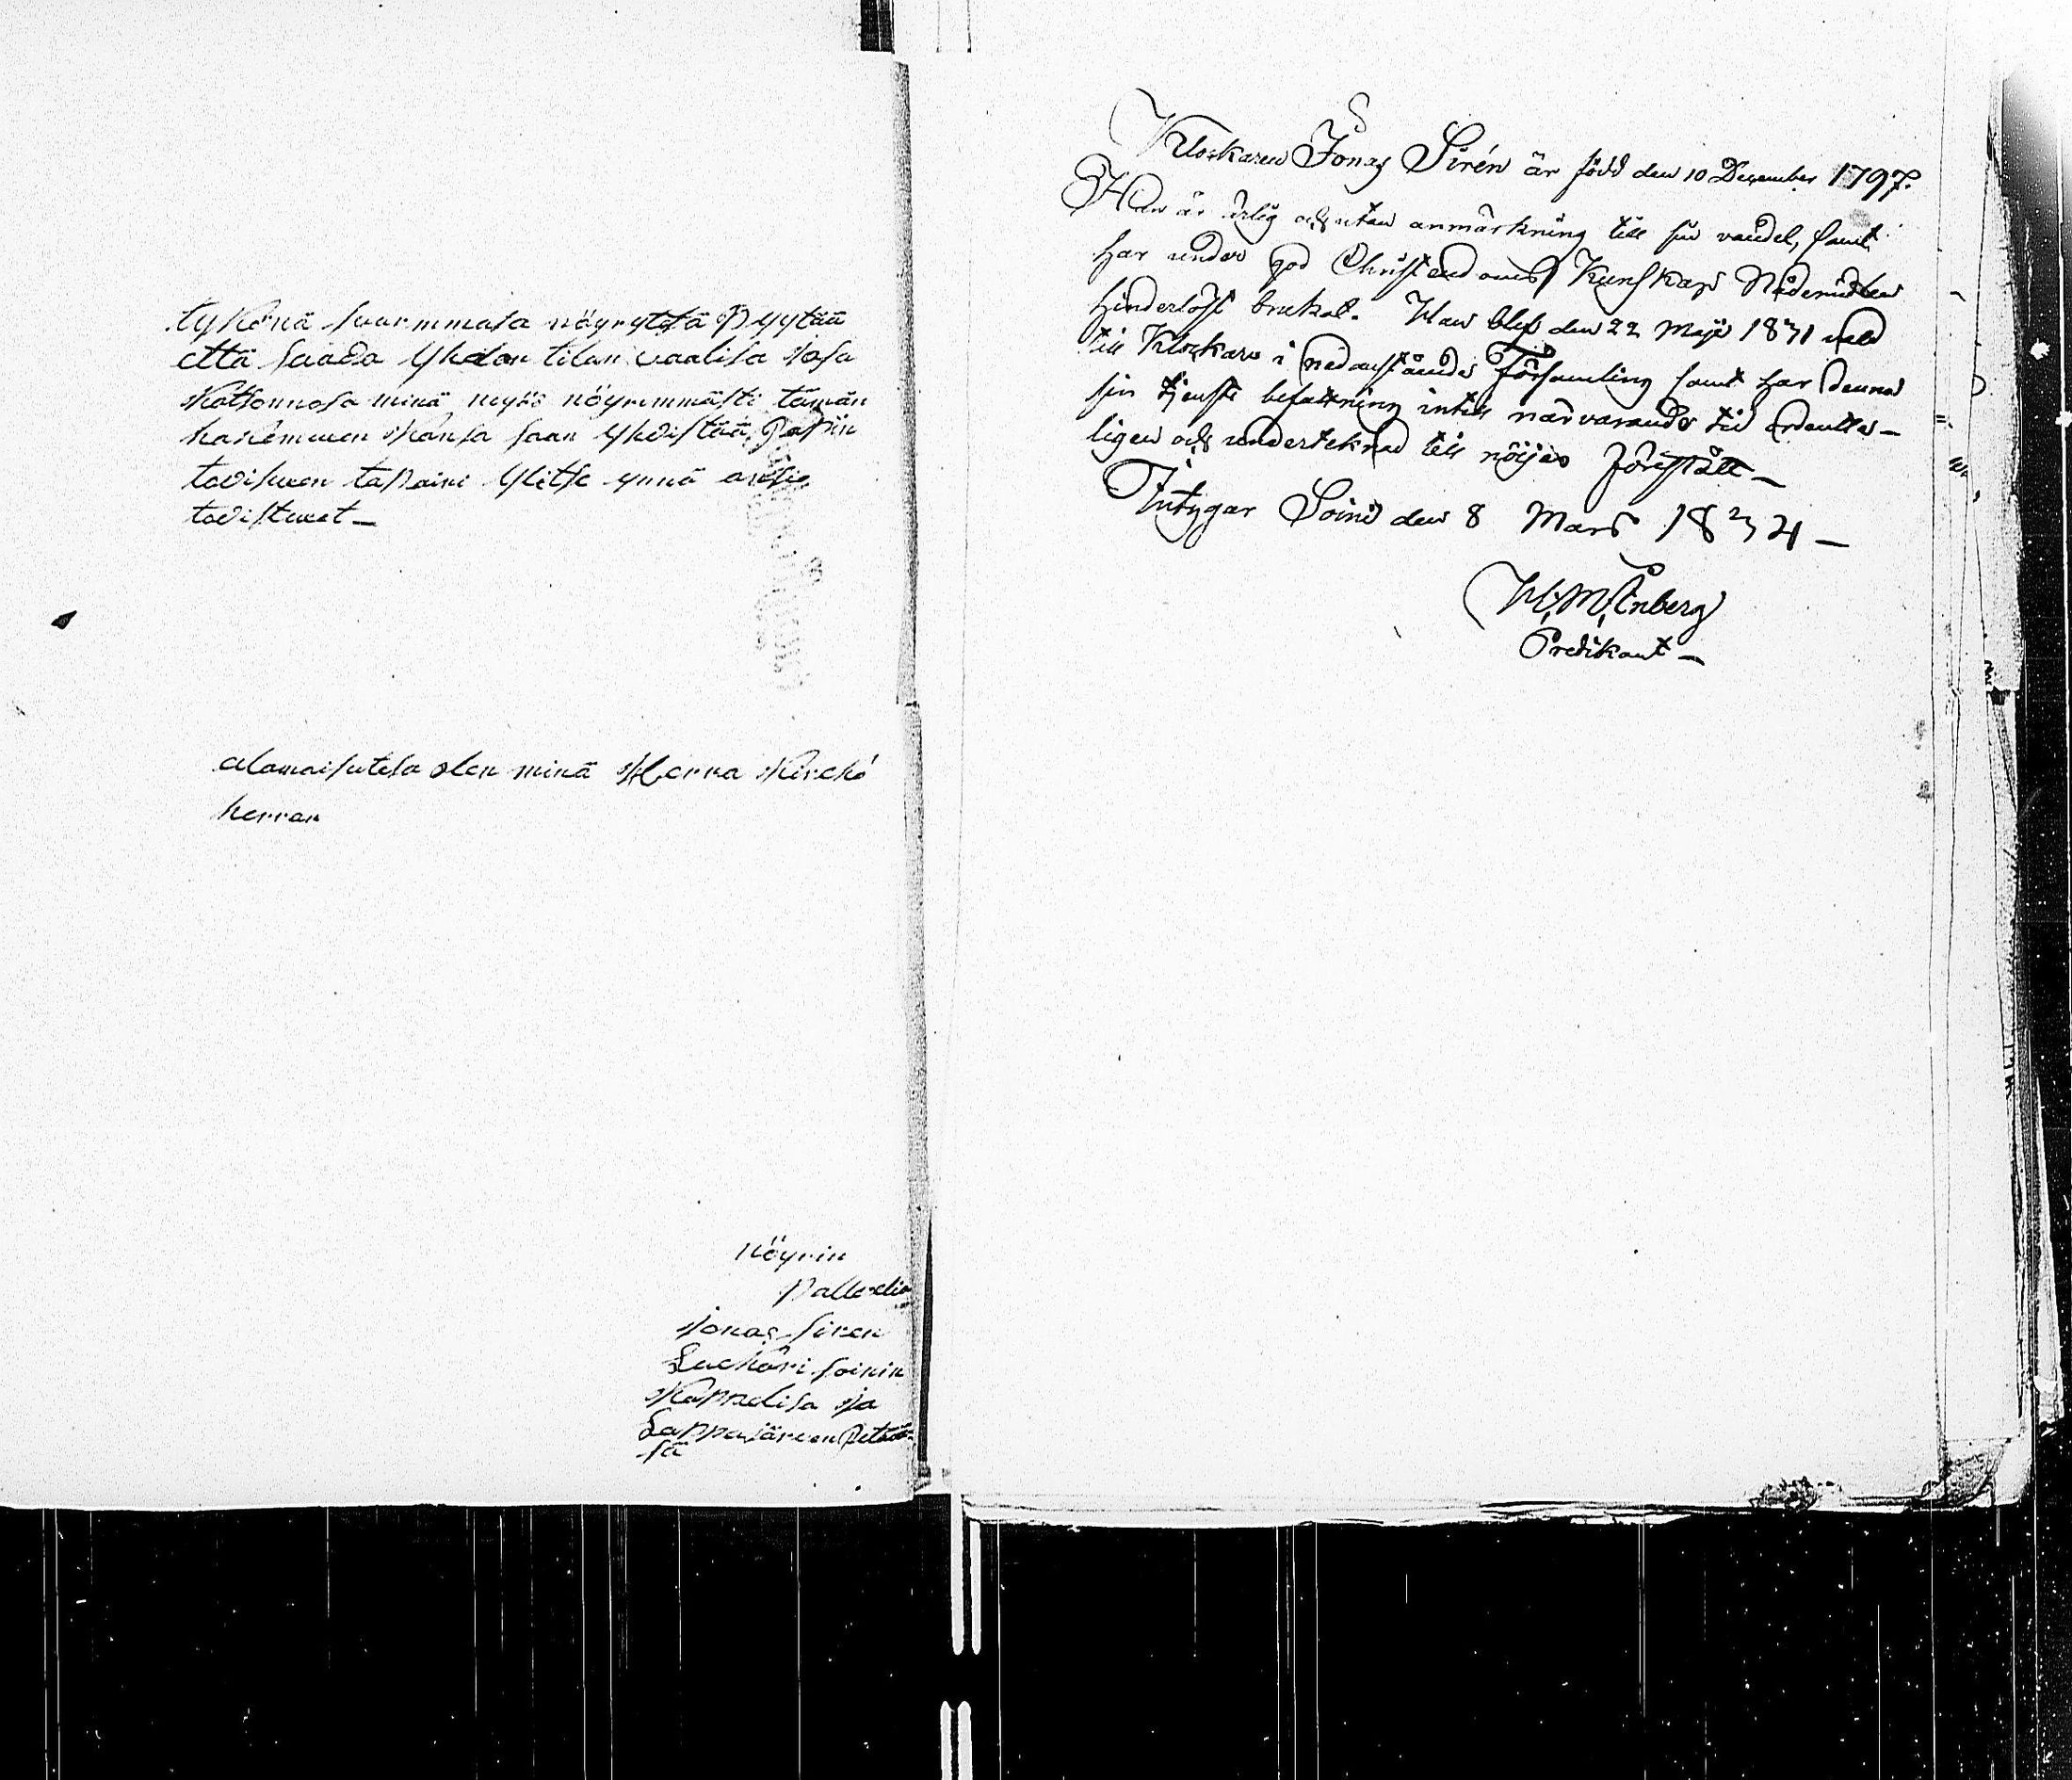 tykönä suurimmasa nöyrytesä Pyytää
että saada Yhden tilan vaalisa Josa
Katsonnosa minä myös nöyrimmästi tämän
hakemuen kansa saan Yhdistää, Papin
todistuen tapaini Ylitse ynnä
todistuxet _
alamaisutesa olen minä Herra Kirckó
herran
Nöyrin
Palvelia
Jonas Siren
Luckari Soinin
Kappelisa Ja
Lappajärven Pitää-
sä
Klockaren Jonas Sirén är född den 10 December 1797.
Han är ärlig och utan anmärkning till sin vandel, samt
har under god Christendoms Kunskap Nådemidlen
hinderlöst brukat. Han blef den 22 Maji 1831 vald
till Klockare i nedanstående Församling samt har denna
sin tjenste befattning intill närvarande tid ordentte-
ligen och undertecknad till nöijes förestått _
Intygar Soini den 8 Mars 1834 _
Enberg
Predikant _